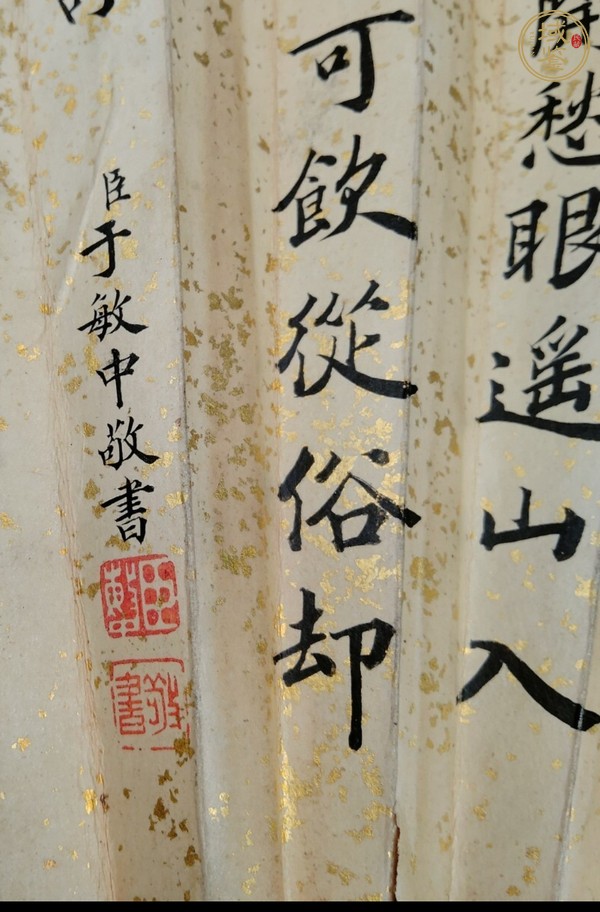 愁眼遥山入
可飲從俗却
臣于敏中敬書
敬書